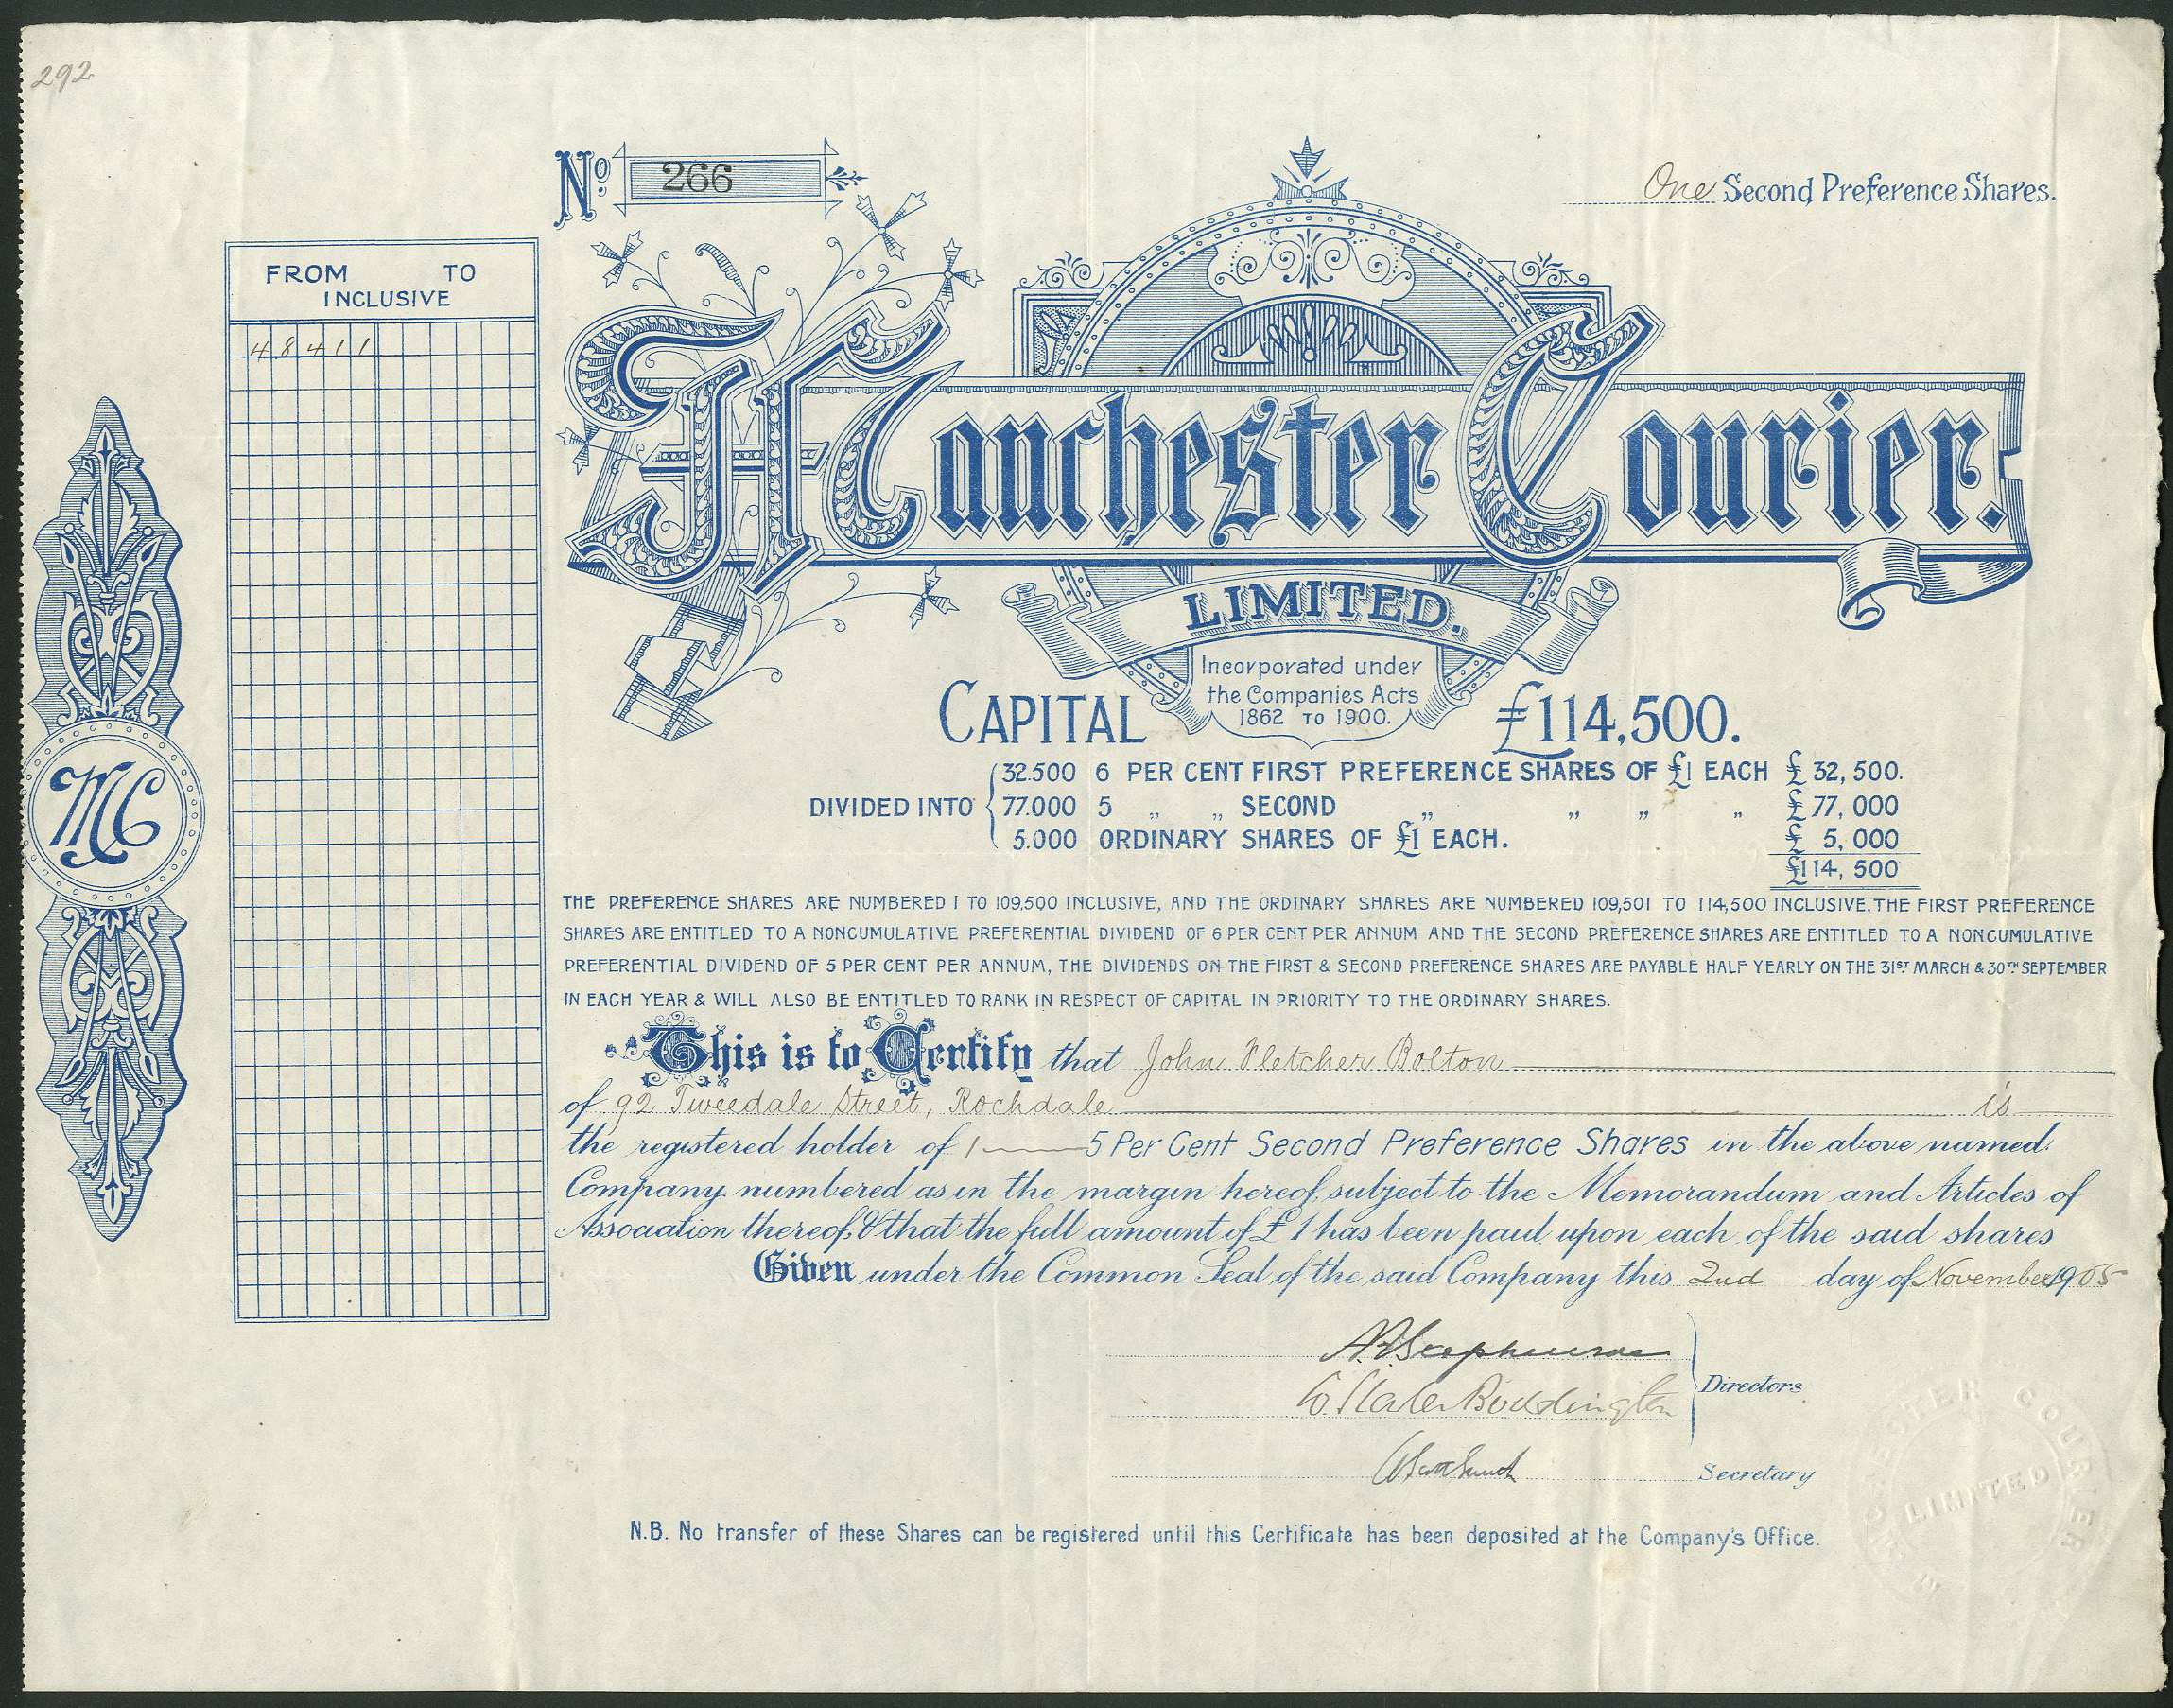 292
No. 266
One Second Preference Shares.
FROM TO
INCLUSIVE
48411
Manchester Courier.
LIMITED.
Incorporated under
the Companies Acts
1862 TO 1900.
CAPITAL £114,500.
32.500 6 PER CENT FIRST PREFERENCE SHARES OF £1 EACH £ 32,500.
DIVIDED INTO 77.000 5 „ „ SECOND „ „ „ „ £ 77,000
5.000 ORDINARY SHARES OF £1 EACH. £ 5,000
£114,500
MC
THE PREFERENCE SHARES ARE NUMBERED 1 TO 109,500 INCLUSIVE, AND THE ORDINARY SHARES ARE NUMBERED 109,501 TO 114,500 INCLUSIVE, THE FIRST PREFERENCE
SHARES ARE ENTITLED TO A NONCUMULATIVE PREFERENTIAL DIVIDEND OF 6 PER CENT PER ANNUM AND THE SECOND PREFERENCE SHARES ARE ENTITLED TO A NONCUMULATIVE
PREFERENTIAL DIVIDEND OF 5 PER CENT PER ANNUM, THE DIVIDENDS ON THE FIRST & SECOND PREFERENCE SHARES ARE PAYABLE HALF YEARLY ON THE 31ST MARCH & 30TH SEPTEMBER
IN EACH YEAR & WILL ALSO BE ENTITLED TO RANK IN RESPECT OF CAPITAL IN PRIORITY TO THE ORDINARY SHARES.
This is to Certify that John Fletcher Bolton
of 92 Tweedale Street, Rochdale is
the registered holder of 1 5 Per Cent Second Preference Shares in the above named
Company numbered as in the margin hereof, subject to the Memorandum and Articles of
Association thereof, & that the full amount of £1 has been paid upon each of the said shares
Given under the Common Seal of the said Company this 2nd day of November 1905
A. Stephenson
W. Slater Boddington
Directors
Secretary
MANCHESTER COURIER
LIMITED
N.B. No transfer of these Shares can be registered until this Certificate has been deposited at the Company's Office.